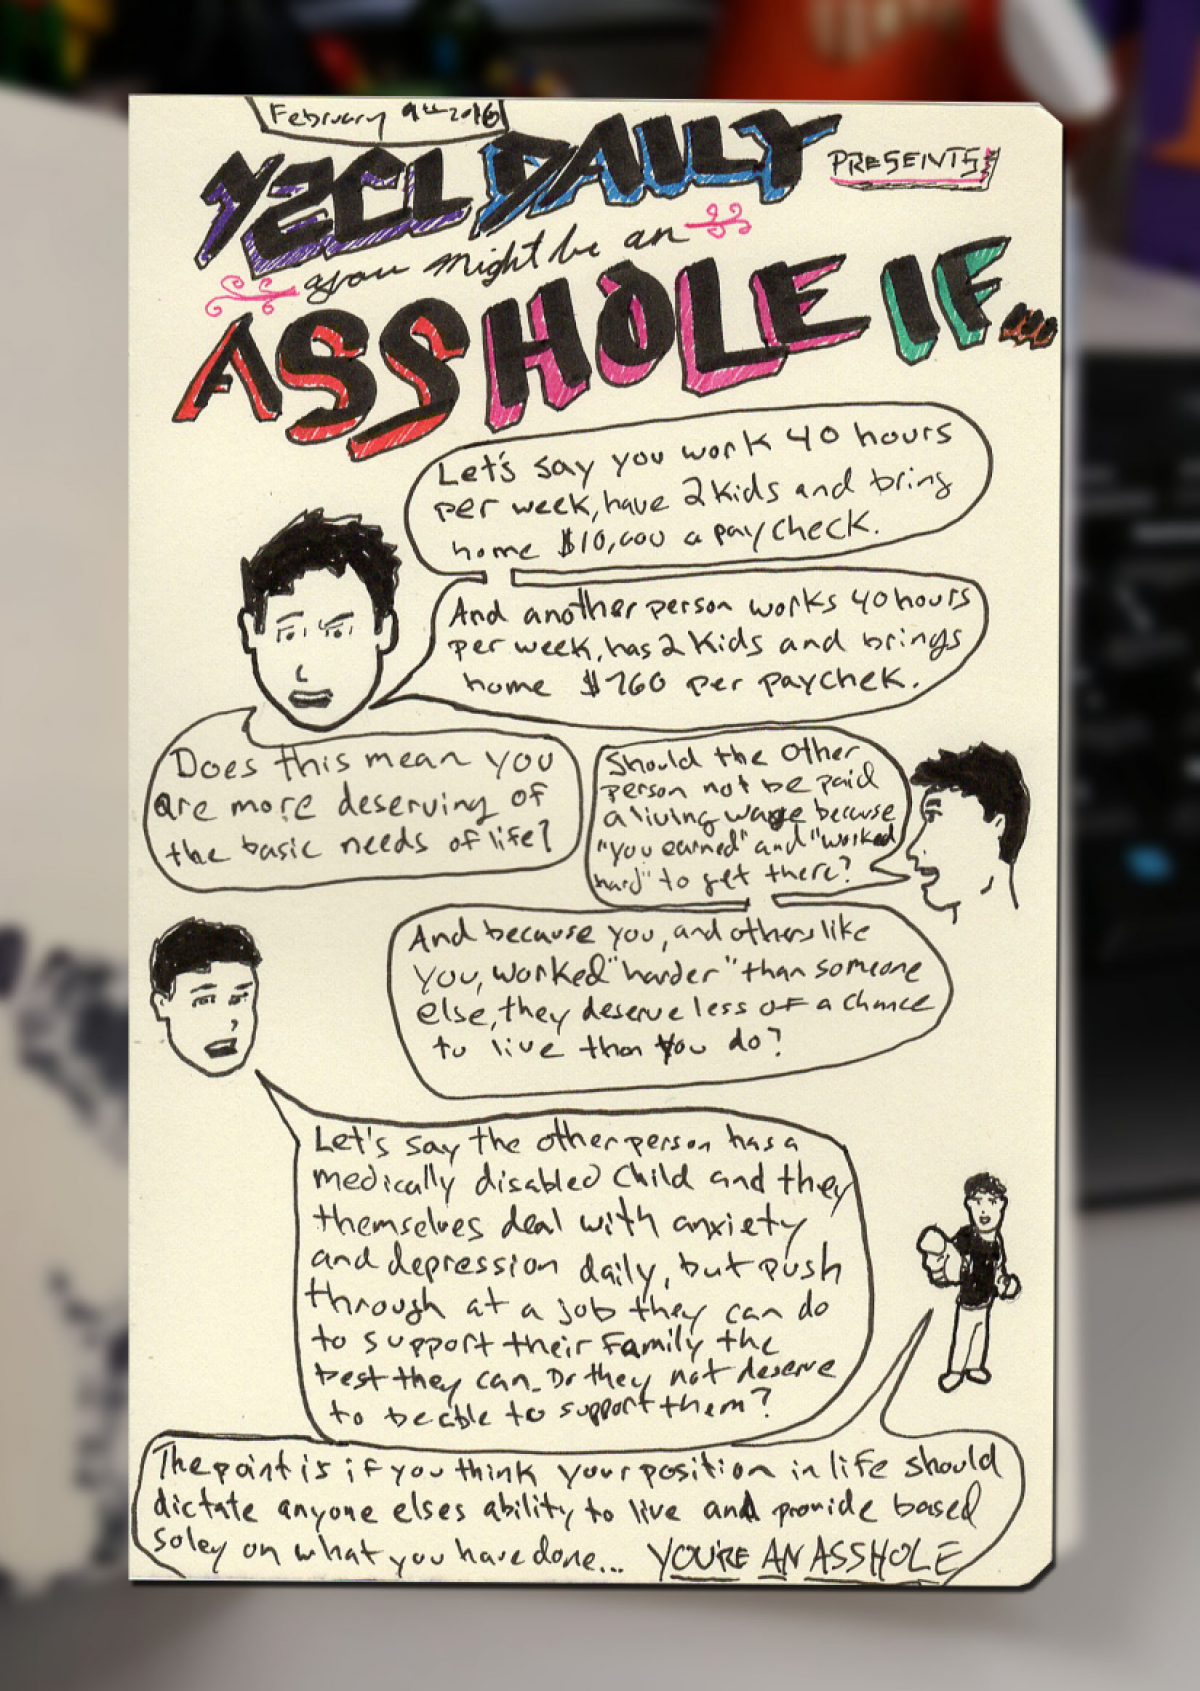 February 9th 2016
YZCL DAILY
PRESENTS
you might be an
ASSHOLE IF...
Let's say you work 40 hours
per week, have 2 kids and bring
home $10,000 a paycheck.
And another person works 40 hours
per week, has 2 kids and brings
home $760 per paychek.
Does this mean you
are more deserving of
the basic needs of life?
Should the other
person not be paid
a living wage because
"you earned" and "worked
hard" to get there?
And because you, and others like
you, worked "harder" than someone
else, they deserve less of a chance
to live than you do?
Let's say the other person has a
medically disabled child and they
themselves deal with anxiety
and depression daily, but push
through at a job they can do
to support their family the
best they can. Do they not deserve
to be able to support them?
The point is if you think your position in life should
dictate anyone elses ability to live and provide based
soley on what you have done... YOU'RE AN ASSHOLE